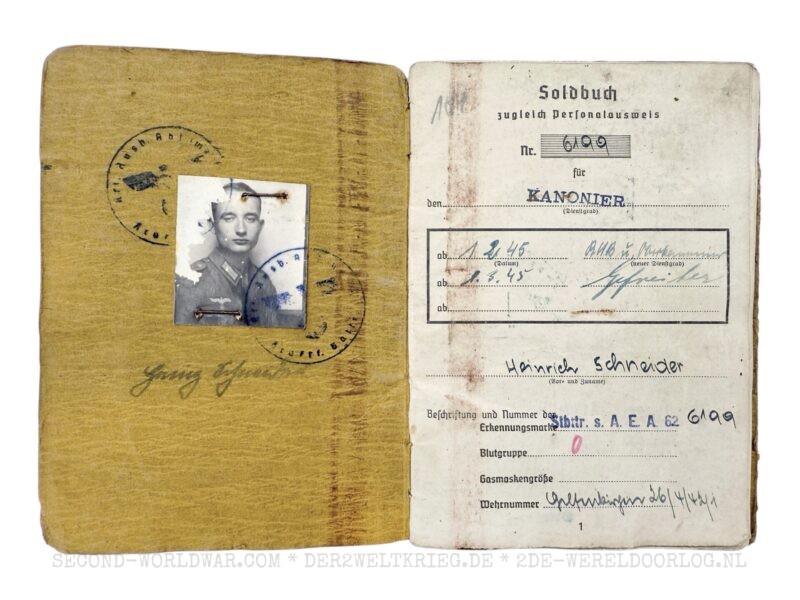 Heinz Schneider
Soldbuch
zugleich Personalausweis
Nr. 6199
für
den KANONIER
(Dienstgrad)
ab 1.2.45
(Datum) (neuer Dienstgrad)
ab 1.3.45 Gefreiter
ab
Heinrich Schneider
(Vor- und Zuname)
Beschriftung und Nummer der
Erkennungsmarke Stbttr. s. A. E. A. 62 6199
Blutgruppe 0
Gasmaskengröße
Wehrnummer Gelsenkirchen 26/4/42/1
1
SECOND-WORLDWAR.COM * DER2WELTKRIEG.DE * 2DE-WERELDOORLOG.NL